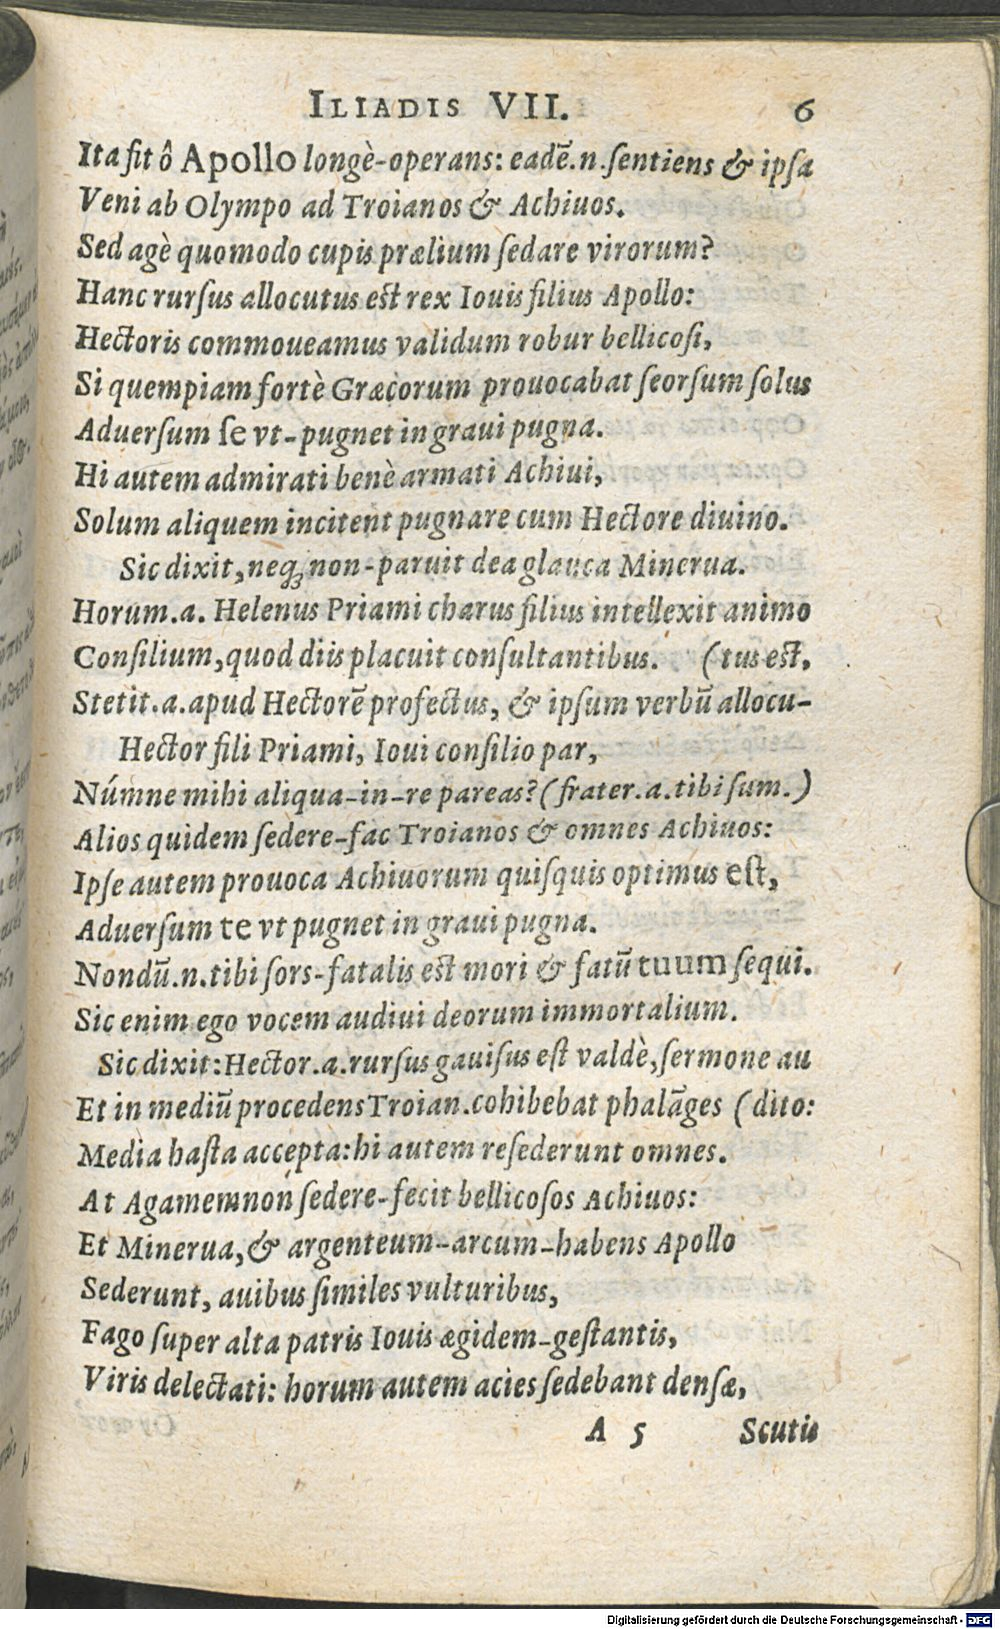 ILIADIS VII. 6
Ita sit ô Apollo longè-operans: eadē.n.sentiens & ipsa
Veni ab Olympo ad Troianos & Achiuos.
Sed agè quomodo cupis prælium sedare virorum?
Hanc rursus allocutus est rex Iouis filius Apollo:
Hectoris commoueamus validum robur bellicosi,
Si quempiam fortè Græcorum prouocabat seorsum solus
Aduersum se vt-pugnet in graui pugna.
Hi autem admirati benè armati Achiui,
Solum aliquem incitent pugnare cum Hectore diuino.
Sic dixit, neq; non-paruit dea glauca Minerua.
Horum.a. Helenus Priami charus filius intellexit animo
Consilium, quod diis placuit consultantibus. (tus est,
Stetit.a.apud Hectorē profectus, & ipsum verbū allocu-
Hector fili Priami, Ioui consilio par,
Númne mihi aliqua-in-re pareas? (frater.a.tibi sum.)
Alios quidem sedere-fac Troianos & omnes Achiuos:
Ipse autem prouoca Achiuorum quisquis optimus est,
Aduersum te vt pugnet in graui pugna.
Nondū.n.tibi sors-fatalis est mori & fatū tuum sequi.
Sic enim ego vocem audiui deorum immortalium.
Sic dixit: Hector.a.rursus gauisus est valdè, sermone au
Et in mediū procedens Troian.cohibebat phalāges (dito:
Media hasta accepta: hi autem resederunt omnes.
At Agamemnon sedere-fecit bellicosos Achiuos:
Et Minerua, & argenteum-arcum-habens Apollo
Sederunt, auibus similes vulturibus,
Fago super alta patris Iouis ægidem-gestantis,
Viris delectati: horum autem acies sedebant densæ,
A 5 Scutis
Digitalisierung gefördert durch die Deutsche Forschungsgemeinschaft - DFG